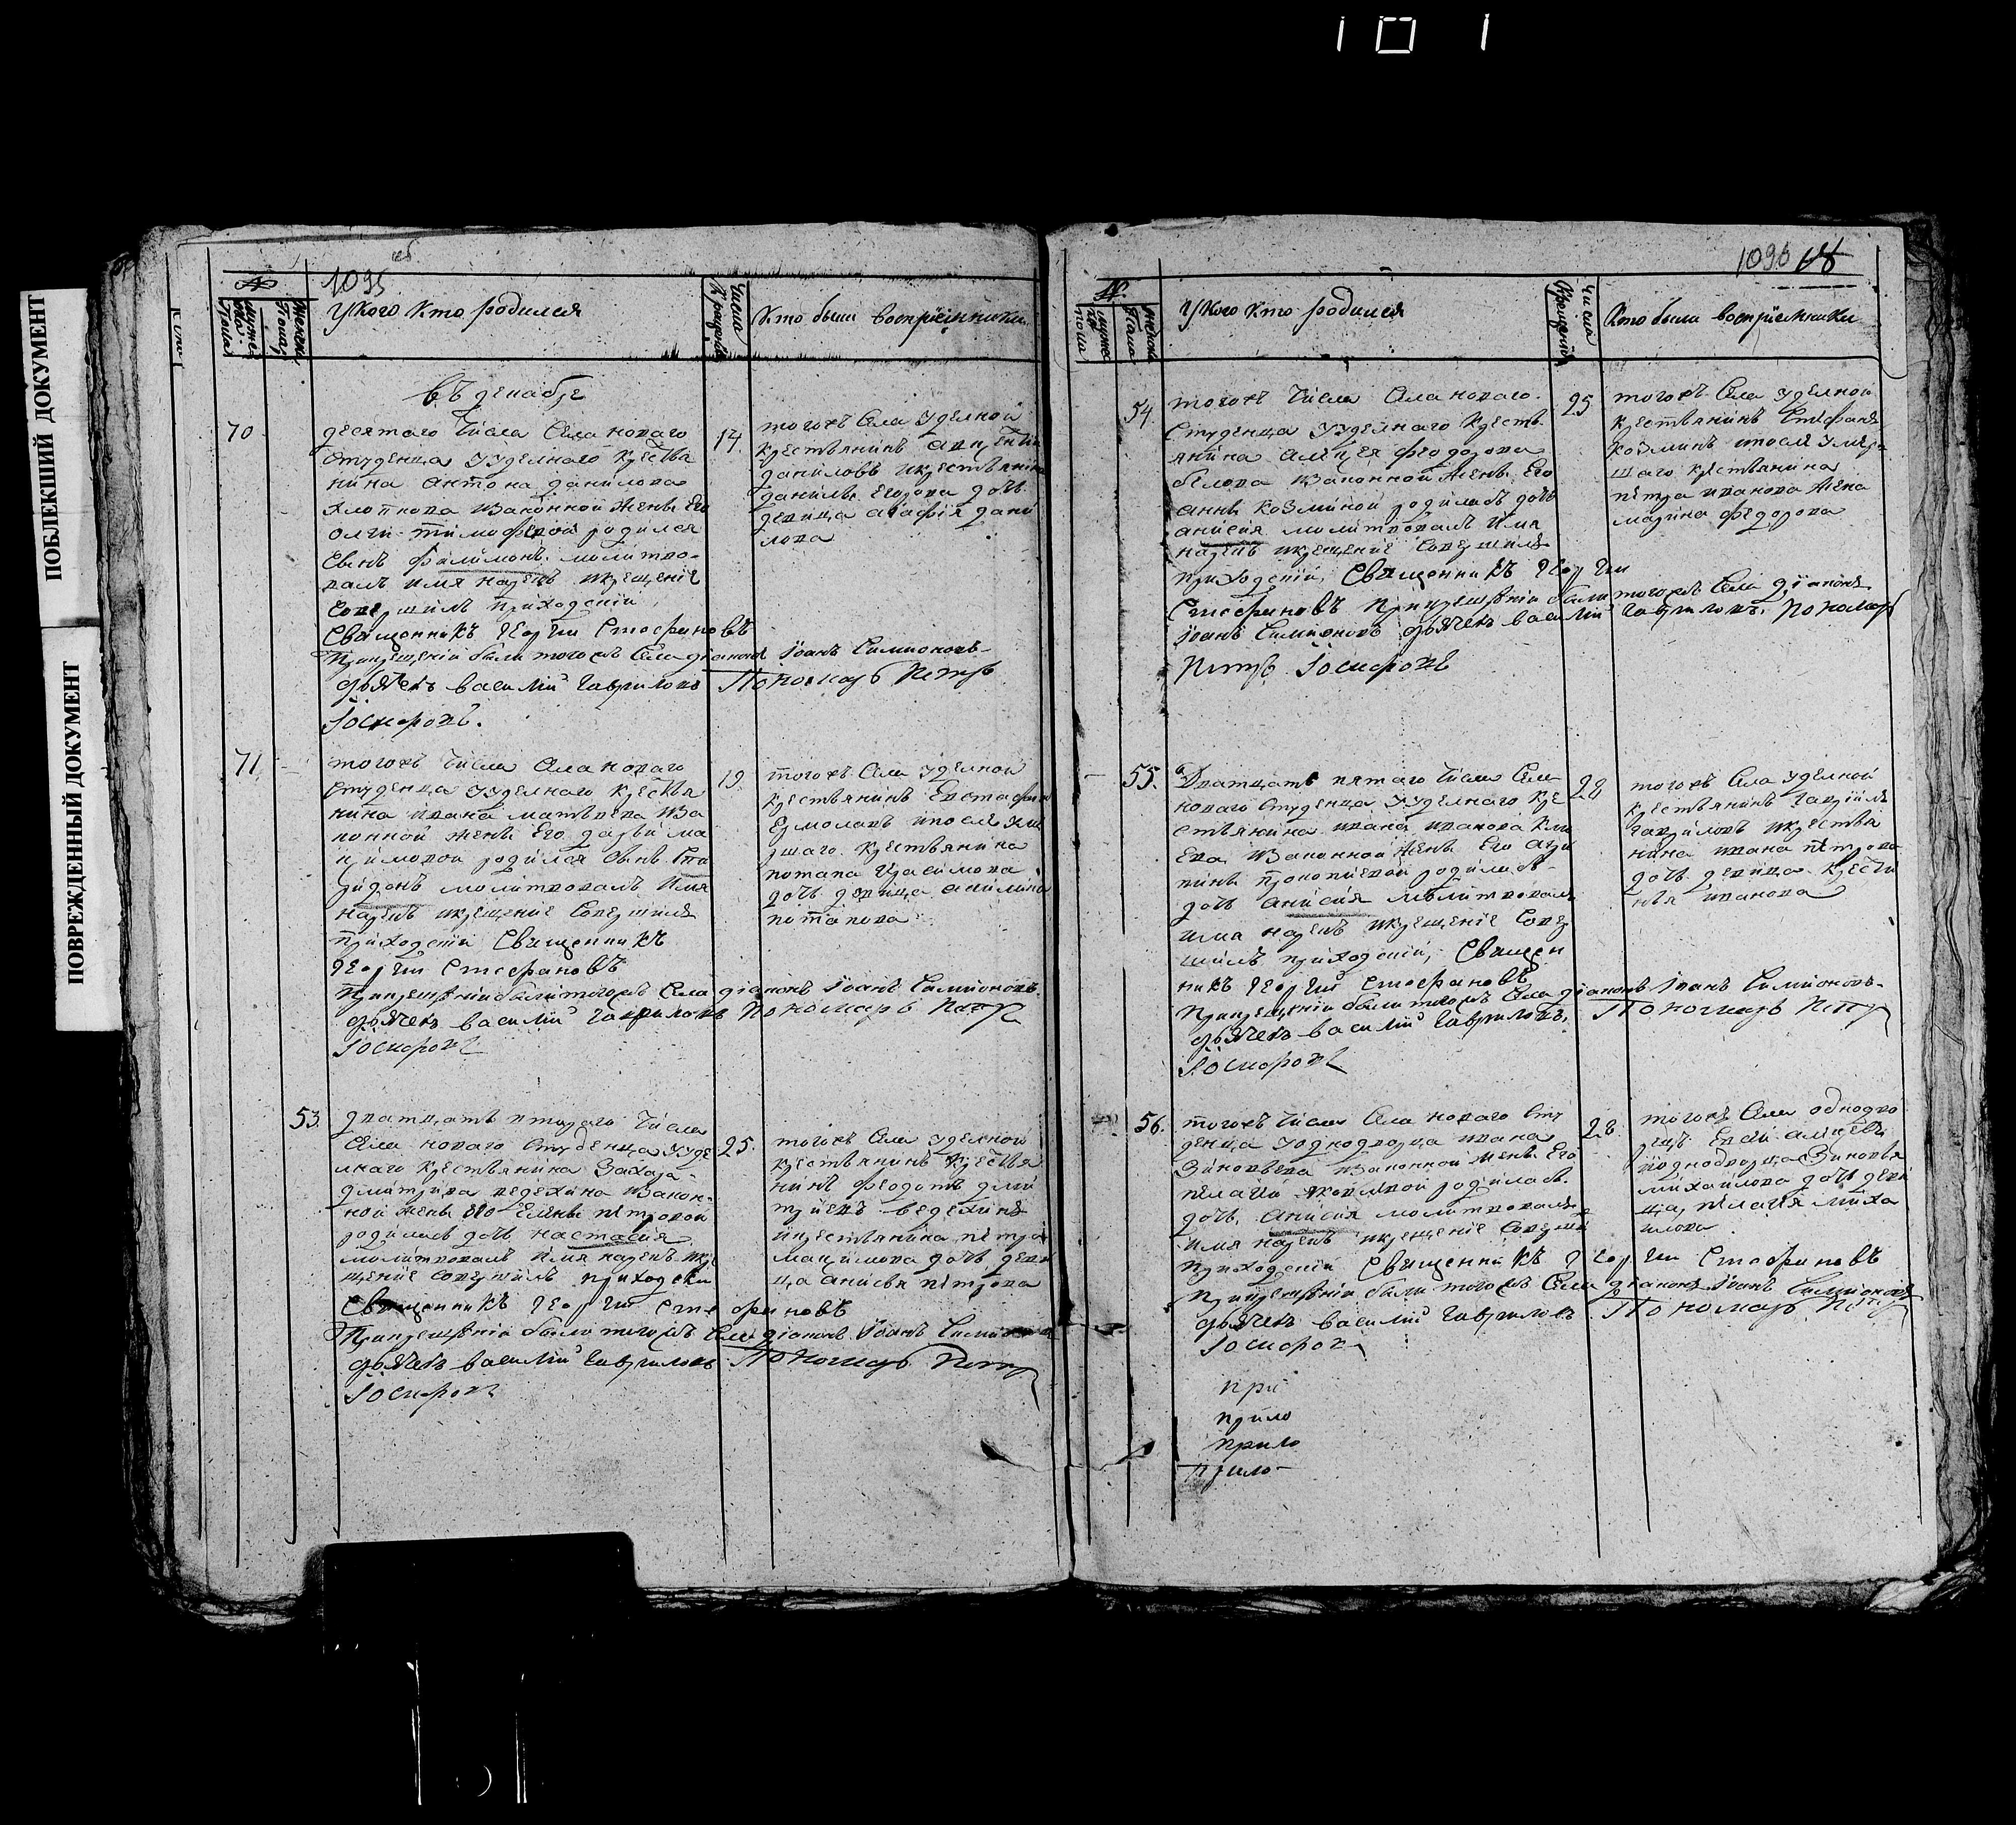 ПОБЛЕКШИЙ ДОКУМЕНТ
ПОВРЕЖДЕННЫЙ ДОКУМЕНТ
1095
№
мужеска пола
женска пола
У кого кто родился
Числа крещенія
Кто были воспріемники
въ декабре
70
десятаго числа села новаго
студенца у уделнаго крестья
нина антона данилова
законной жены его
олги тимофевой родился
сынъ филимонъ молитво
валъ имя нарекъ икрещеніе
совершилъ приходскій
Священникъ Георгій Стефановъ
Прикрещеніи были тогожъ села діаконъ Іоанъ Симионовъ
дьячекъ василій Гавриловъ Пономарь Петръ
Іосифовъ.
14
тогожъ села уделной
крестьянинъ
даниловъ икрестьянина
данилы Егорова дочь
девица агафія дани
лова
71
тогожъ числа села новаго
студенца у уделнаго крестья
нина ивана матвеева иза
конной жены его дарьи ма
римовой родился сынъ спи
ридонъ молитвовалъ имя
нарекъ икрещеніе совершилъ
приходскій Священникъ
Георгій Стефановъ
Прикрещеніи были тогожъ села діаконъ Іоанъ Симионовъ
дьячекъ василій Гавриловъ Пономарь Петръ
Іосифовъ
19
тогожъ села уделной
крестьянинъ Евстафій
Ермолаевъ ипосле уме
ршаго крестьянина
потапа герасимова
дочь девица акилина
потапова
53.
дватцать втораго числа
села новаго студенца у уде
лнаго крестьянина захара
дмитріева ведехина изакон
ной жены его елены петровой
родилась дочь настасия
молитвовалъ имя нарекъ икре
щеніе совершилъ приходски
Священникъ Георгій Стефановъ
Прикрещеніи были тогожъ села діаконъ Іоанъ
дьячекъ василій Гавриловъ Пономарь Петръ
Іосифовъ
25.
тогожъ села уделной
крестьянинъ крестья
нинъ феодотъ дми
тріевъ ведехинъ
икрестьянина петра
максимова дочь деви
ца анисья петрова
1096
№
мужеска пола
женска пола
У кого кто родился
Числа крещенія
Кто были воспріемники
54
тогожъ числа села новаго
студенца у уделнаго кресть
янина алексея феодорова
белова изаконной жены его
анны козминой родиласъ дочь
анисия молитвовалъ имя
нарекъ икрещеніе совершилъ
приходскій, Священникъ Георгіи
Стефановъ Прикрещеніи были тогожъ села діаконъ
Іоанъ Симионовъ дьячекъ василій Гавриловъ, Пономарь
Петръ Іосифовъ
25
тогожъ села уделной
крестьянинъ Стефанъ
козминъ ипосле умер
шаго крестьянина
петра иванова жена
марина федорова
55.
Дватцать пятаго числа села
новаго студенца у уделнаго кре
стьянина ивана иванова
изаконной жены его агри
пины прокопиевой родиласъ
дочь анисия молитвовалъ
имя нарекъ икрещеніе совер
шилъ приходскій, Священ
никъ Георгій Стефановъ
Прикрещеніи были тогожъ села діаконъ Іоанъ Симионовъ
дьячекъ василій Гавриловъ, Пономарь Петръ
Іосифовъ
28
тогожъ села уделной
крестьянинъ гаврилъ
гавриловъ икрестья
нина ивана петрова
дочь девица
иванова
56.
тогожъ числа села новаго сту
денца у однодворца ивана
Зиновьева изаконной жены его
пелагии яковлевой родиласъ
дочь, анисия молитвовалъ
имя нарекъ икрещеніе соверши
приходскій Священникъ Георгіи Стефановъ
Прикрещеніи были тогожъ села діаконъ Іоанъ Симионовъ
дьячекъ василій Гавриловъ Пономарь Петръ
Іосифовъ
28
тогожъ села однодво
рецъ алексеевъ
иоднодворца Зиновья
михайлова дочь деви
ца, пелагия миха
илова
при
прило
прило
прило